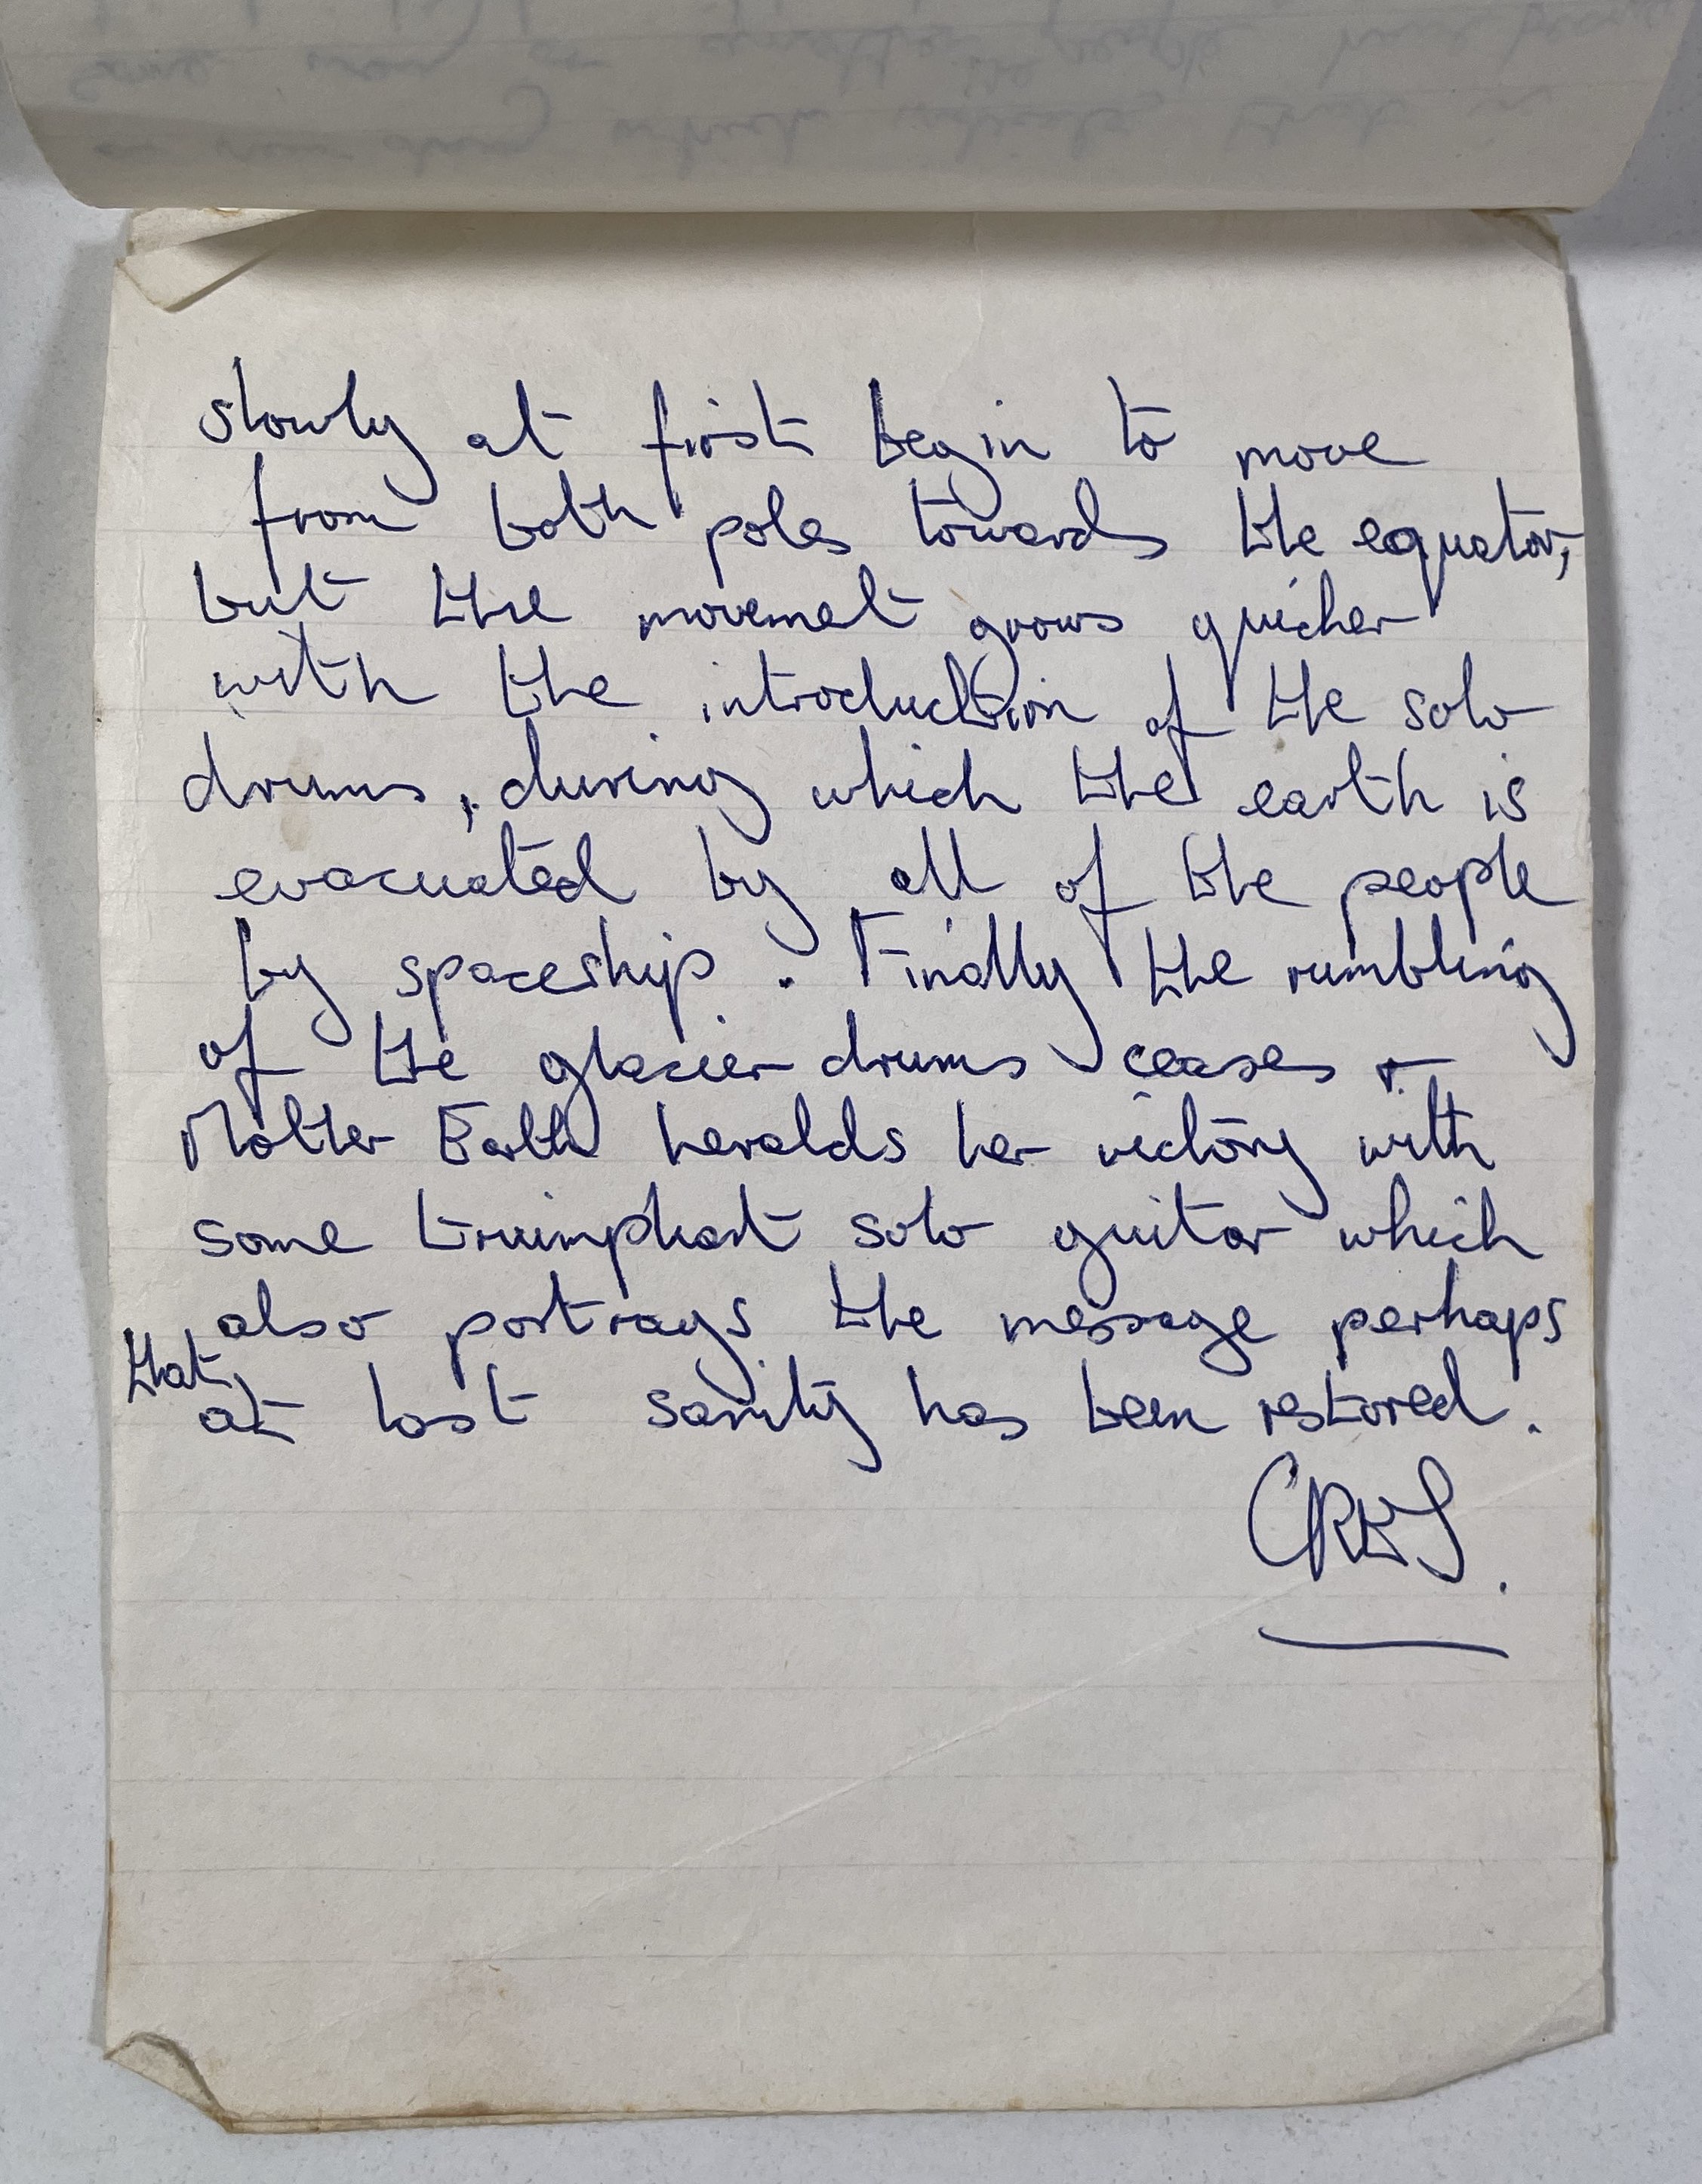 slowly at first begin to move
from both poles towards the equator,
but the movement grows quicker
with the introduction of the solo
drums, during which the earth is
evacuated by all of the people
by spaceship. Finally the rumbling
of the glacier drums ceases +
Mother Earth heralds her victory with
some triumphant solo guitar which
also portrays the message perhaps
that
at last sanity has been restored.